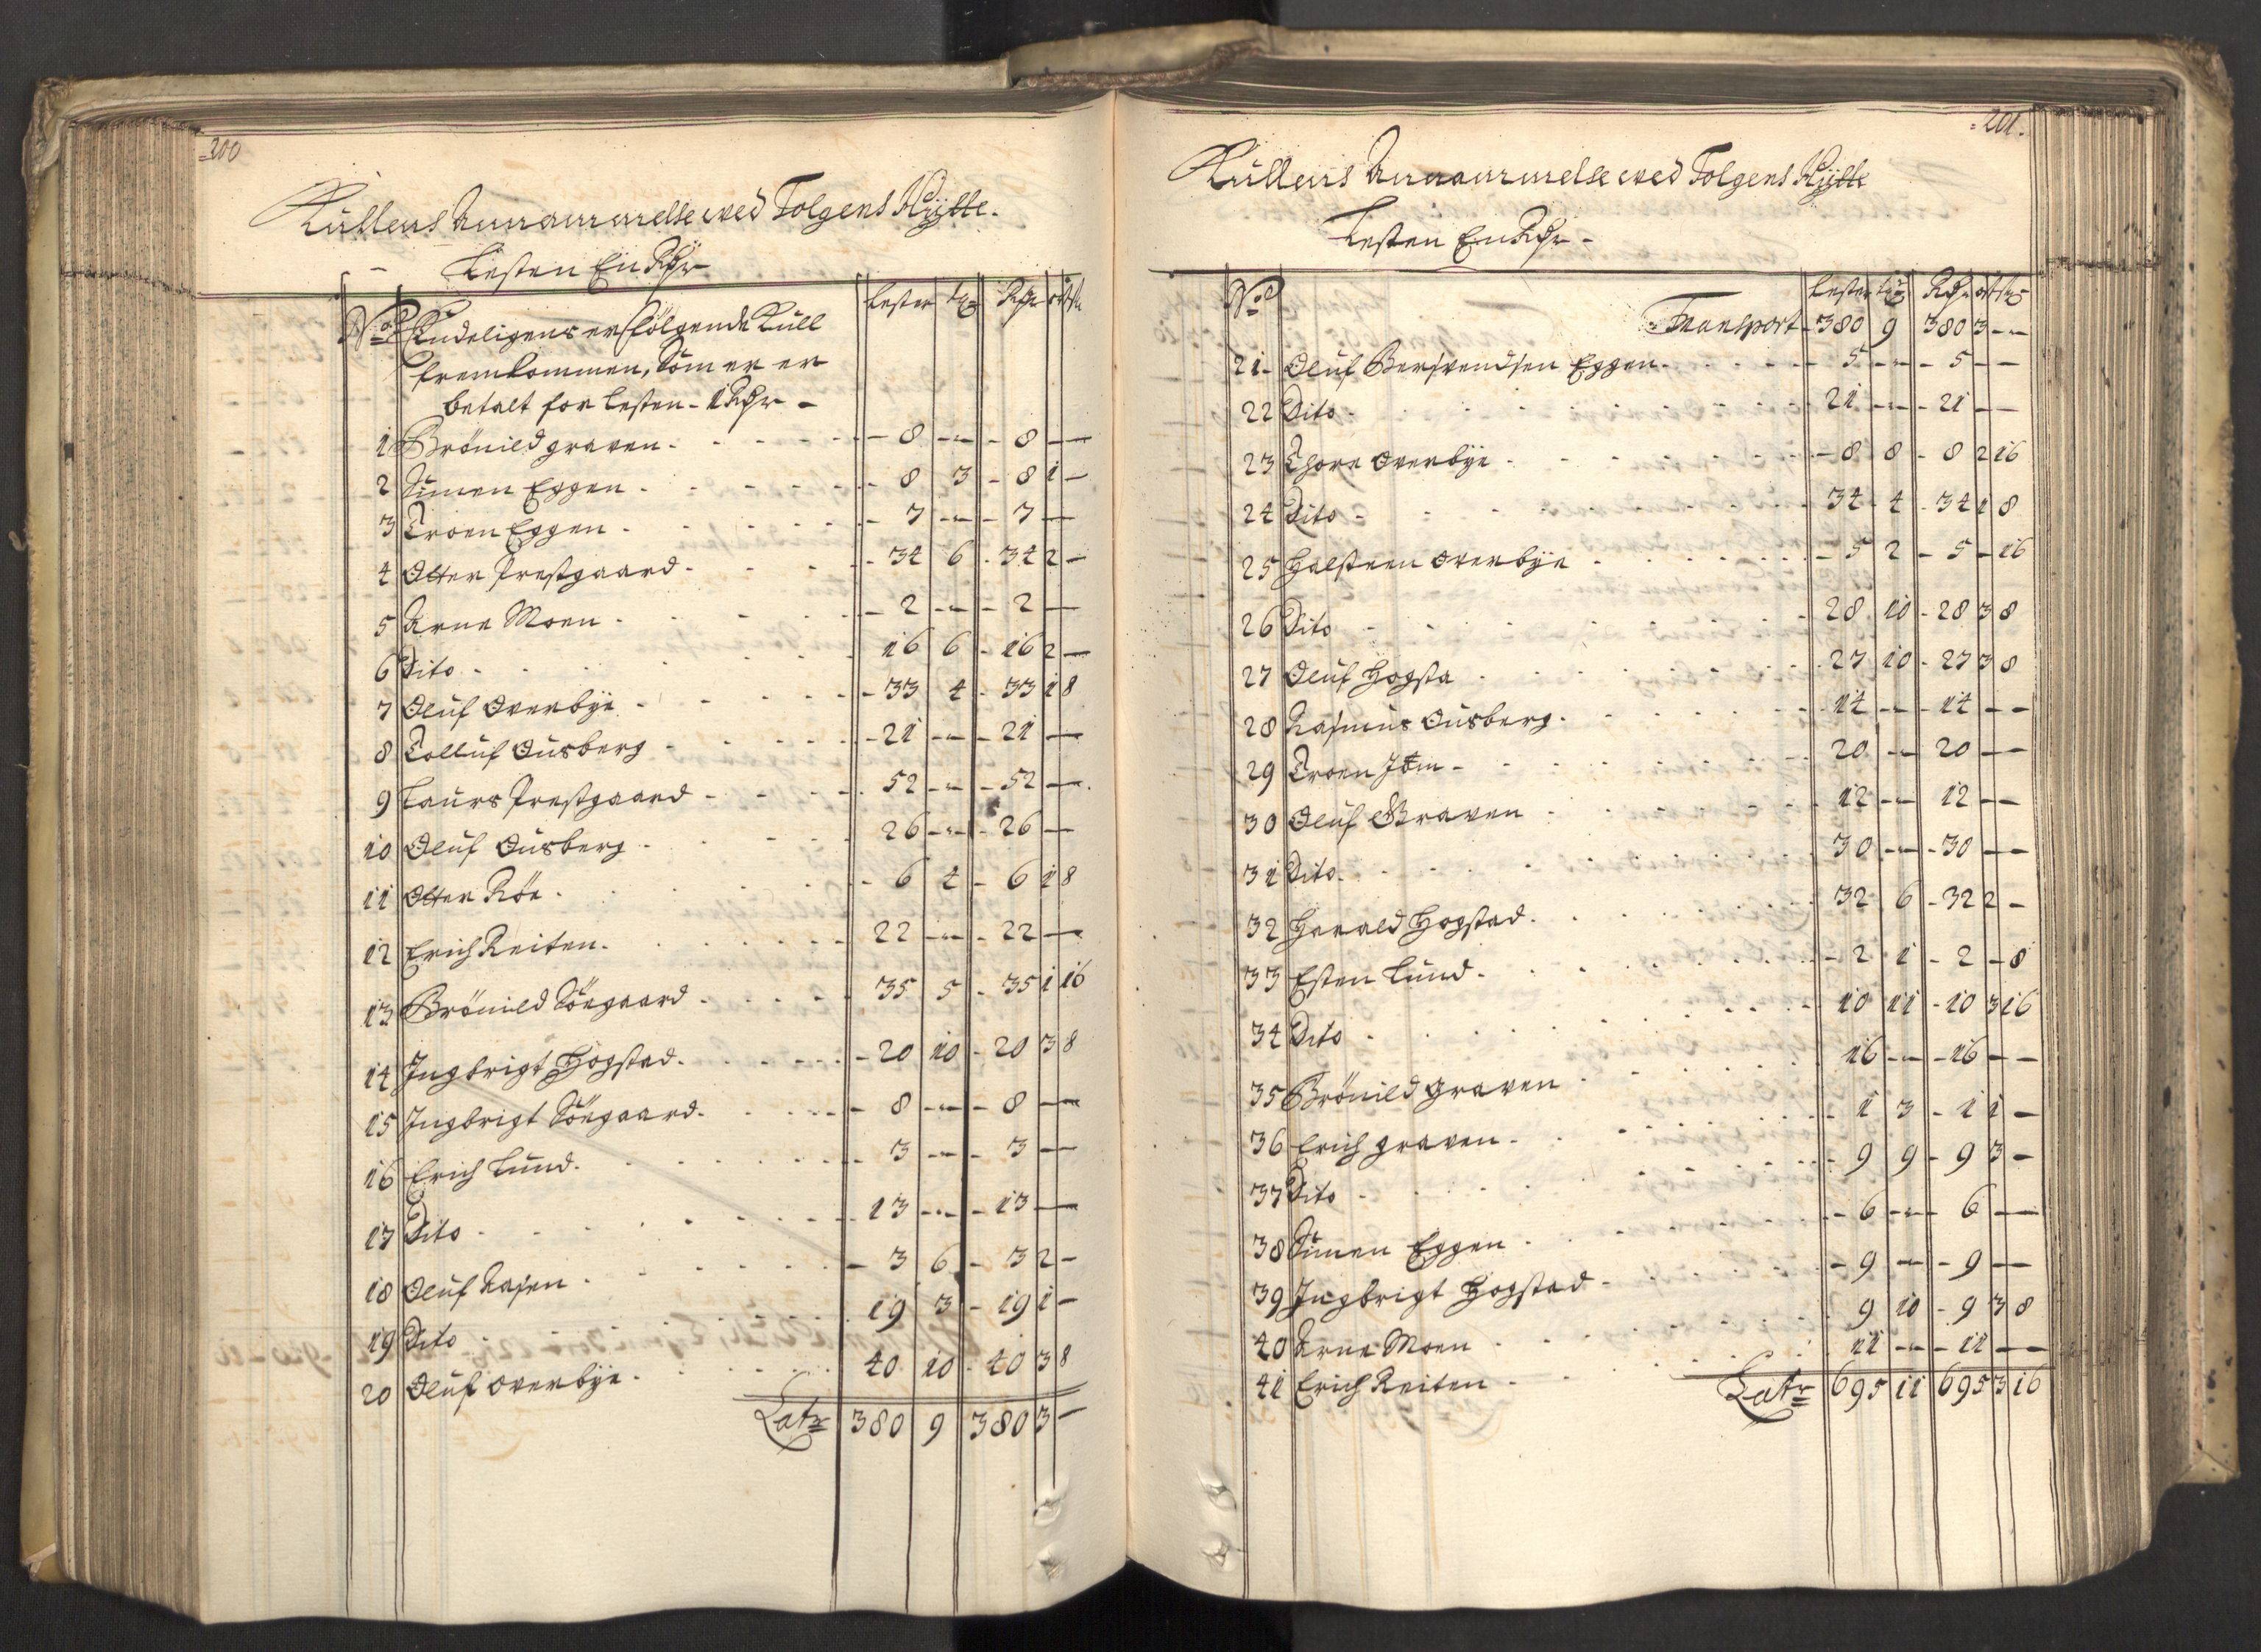 =200
Kullens Annammelse wed Tolgens Hÿtte.
Lesten En Rdr
No Endeligens er følgende Kull Lester tr Rdr ort s
fremkommen, Som er er
betalt for lesten - 1 Rdr -
1 Brönild graven - 8 - - 8 -
2 Simen Eggen - 8 3 - 8 1 -
3 Troen Eggen - 7 - - 7 -
4 Otter Prestgaard - 34 6 - 34 2 -
5 Arne Moen - 2 - - 2 -
6 Dito - 16 6 - 16 2 -
7 Oluf Overbye - 33 4 - 33 1 8
8 Tolluf Ousberg - 21 - - 21 -
9 Laurs Prestgaard - 52 - - 52 -
10 Oluf Ousberg - 26 - - 26 -
11 Otter Röe - 6 4 - 6 1 8
12 Erich Reiten - 22 - - 22 -
13 Brönild Söegaard - 35 5 - 35 1 16
14 Ingbrigt Hogstad - 20 10 - 20 3 8
15 Ingbrigt Söegaard - 8 - - 8 -
16 Erich Lund - 3 - - 3 -
17 Dito - 13 - - 13 -
18 Oluf Aasen - 3 6 - 3 2 -
19 Dito - 19 3 - 19 1 -
20 Oluf overbye - 40 10 - 40 3 8
Latr 380 9 380 3 -
=201.
Kullens Annammelse wed Tolgens Hÿtte
Lesten En Rdr -
No Lester tr Rdr ort s
Transport - 380 9 380 3 -
21 - Oluf Bersvendsen Eggen - 5 - - 5 - -
22 Dito - 21 - - 21 - -
23 Thore Overbye - 8 8 - 8 2 16
24 Dito - 34 4 - 34 1 8
25 Halsteen Overbye - 5 2 - 5 - 16
26 Dito - 28 10 - 28 3 8
27 Oluf Hogsta - 27 10 - 27 3 8
28 Rasmus Ousberg - 14 - - 14 - -
29 Troen - 20 - 20 - -
30 Oluf Graven - 12 - 12 - -
31 Dito - 30 - - 30 - -
32 Harald Hogstad - 32 6 - 32 2 -
33 Esten Lund - 2 1 - 2 - 8
34 Dito - 10 11 - 10 3 16
35 Brönild graven - 16 - - 16 - -
36 Erich graven - 1 3 - 1 1 -
37 Dito - 9 9 - 9 3 -
38 Simen Eggen - 6 - - 6 - -
39 Ingbrigt Hogstad - 9 - - 9 - -
40 Arne Moen - 9 10 - 9 3 8
41 Erich Reiten - 11 - - 11 - -
Latr 695 11 695 3 16